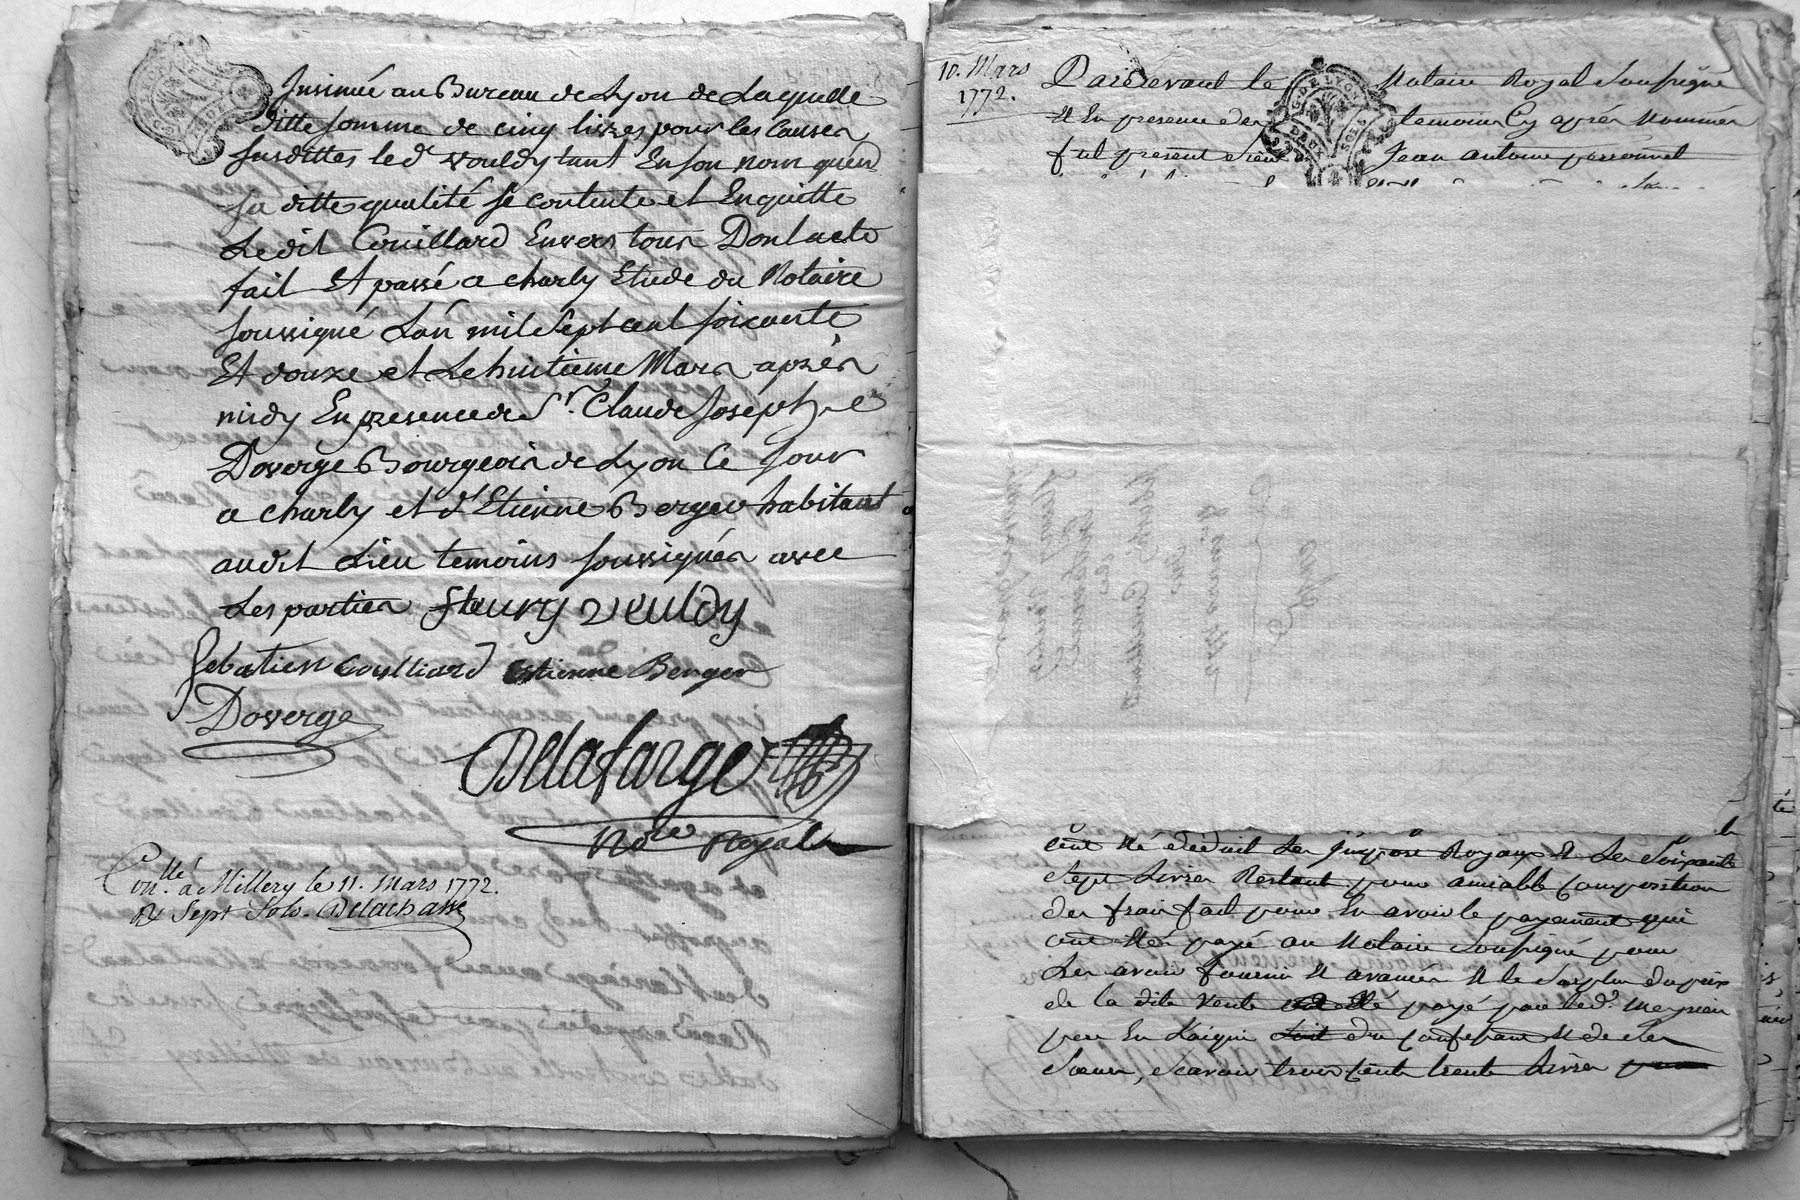 Insinué au Bureau de Lyon de Laquelle
ditte somme de cinq livres pour les causes
susdittes led. vouldy tant En son nom qu'en
sa ditte qualité se contente et Enquitte
Ledit Couillard Envers tous Dont acte
fait Et passé a charly Etude du Notaire
soussigné L'an mil Sept cent soixante
Et douze et Le huitieme Mars après
midy En presence de Sr. Claude Joseph
Doverge Bourgeois de Lyon Ce Jour
a charly et d'Etienne Berger habitant
audit Lieu temoins soussignés avec
Les parties fleury veuldy
Sebatien Couilliard Etienne Berger
Doverge
Delafarge
Nore Royal
Conllé. à Millery le 11. Mars 1772.
Rx Sept Sols. Delachasse
10. Mars
1772.
Pardevant le Notaire Royal Soussigné
Et En presence des temoins Cy après Nommés
fut present sieur Jean antoine
G. DE LYON
DEUX SOLS
été déduit Les Royaux Et Les Soixante
Sept Livres Restant pour amiable Composition
des frais fait pour En avoir le payement qui
ont étés payé au Notaire Soussigné pour
Les avoir fourni Et avancés Et le Surplus du prix
de la dite vente a été payé par led.
pere En L'aquit du Confessant Et de Ses
Sœurs, Scavoir trois Cent trente Livres